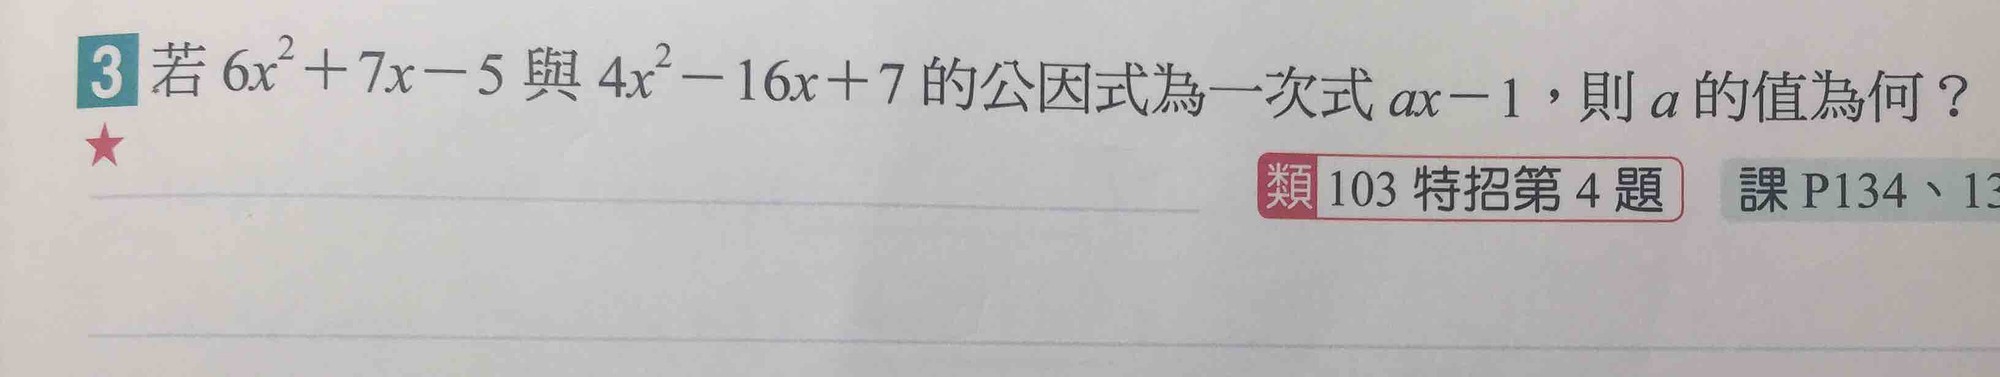 3 若 6x²+7x-5 與 4x²-16x+7 的公因式為一次式 ax-1，則 a 的值為何？
★
類 103 特招第 4 題 課 P134、13